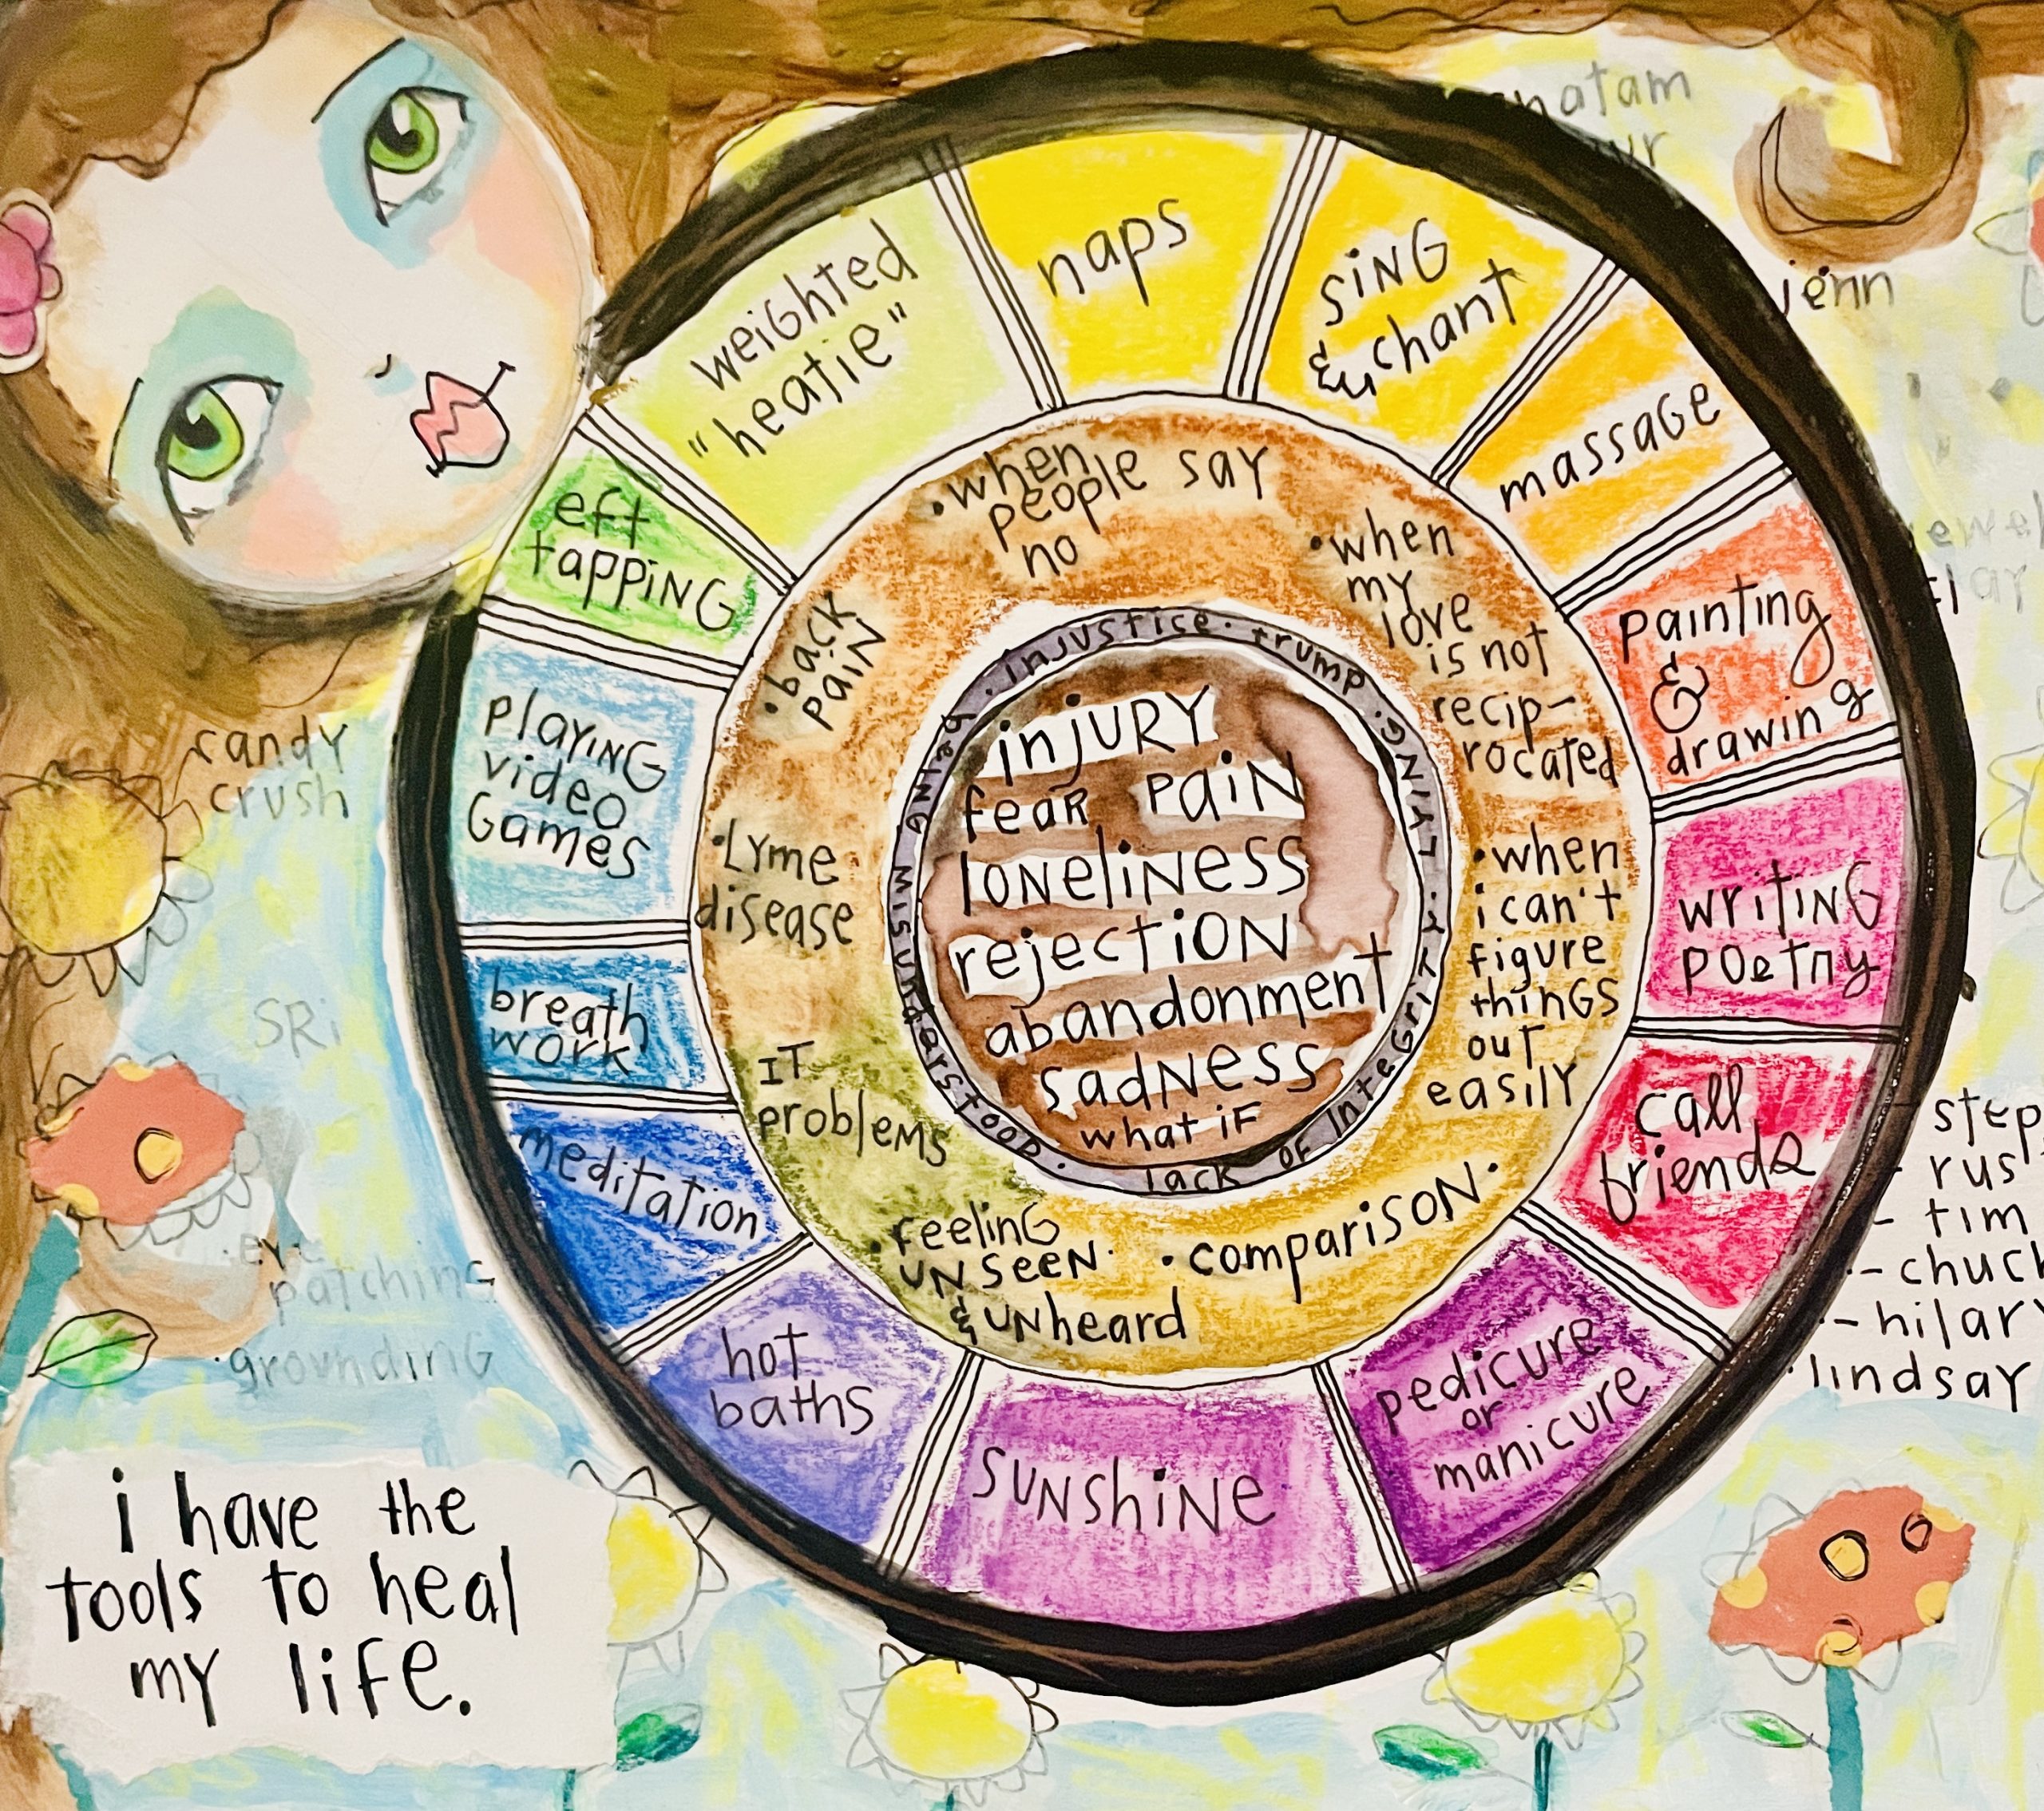 weighted
"heatie"
naps
sing
& chant
massage
painting
&
drawing
writing
poetry
call
friends
pedicure
or
manicure
sunshine
hot
baths
meditation
breath
work
playing
video
games
eft
tapping
•when
people say
no
•when
my
love
is not
recip-
rocated
•when
i can't
figure
things
out
easily
•comparison•
•feeling
unseen•
& unheard
IT
problems
•Lyme
disease
•back
pain
•injustice•trump•lying•lack of integrity•being misunderstood•
injury
fear pain
loneliness
rejection
abandonment
sadness
what if
candy
crush
SRi
•eye
patching
•grounding
jenn
step
- rus
- tim
- chuck
- hilary
•lindsay
i have the
tools to heal
my life.